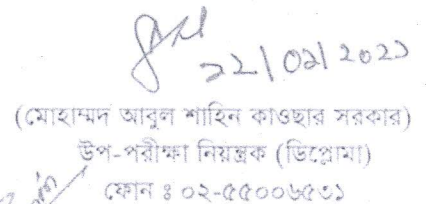 ২২/০২/২০২১
(মোহাম্মদ আবুল শাহিন কাওছার সরকার)
উপ-পরীক্ষা নিয়ন্ত্রক (ডিপ্লোমা)
ফোন ঃ ০২-৫৫০০৬৫৩১